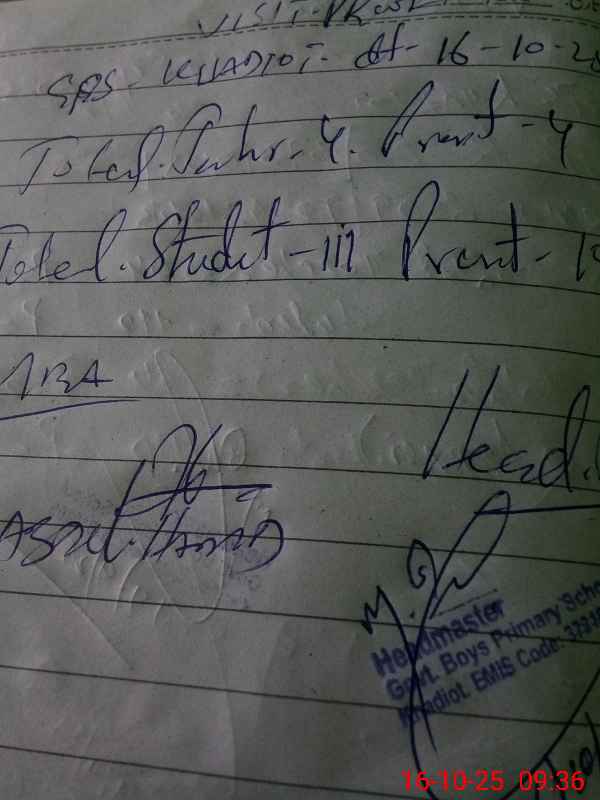 VISIT
GPS - KHADIOT. dt - 16 - 10 - 2
Total. - 4. Present - 4
Total. Student - 111 Present - 1
Head.
ABDUL. HAMMAD
M.
Headmaster
Govt. Boys Primary Scho
Khadiot. EMIS Code: 3731
16-10-25 09:36